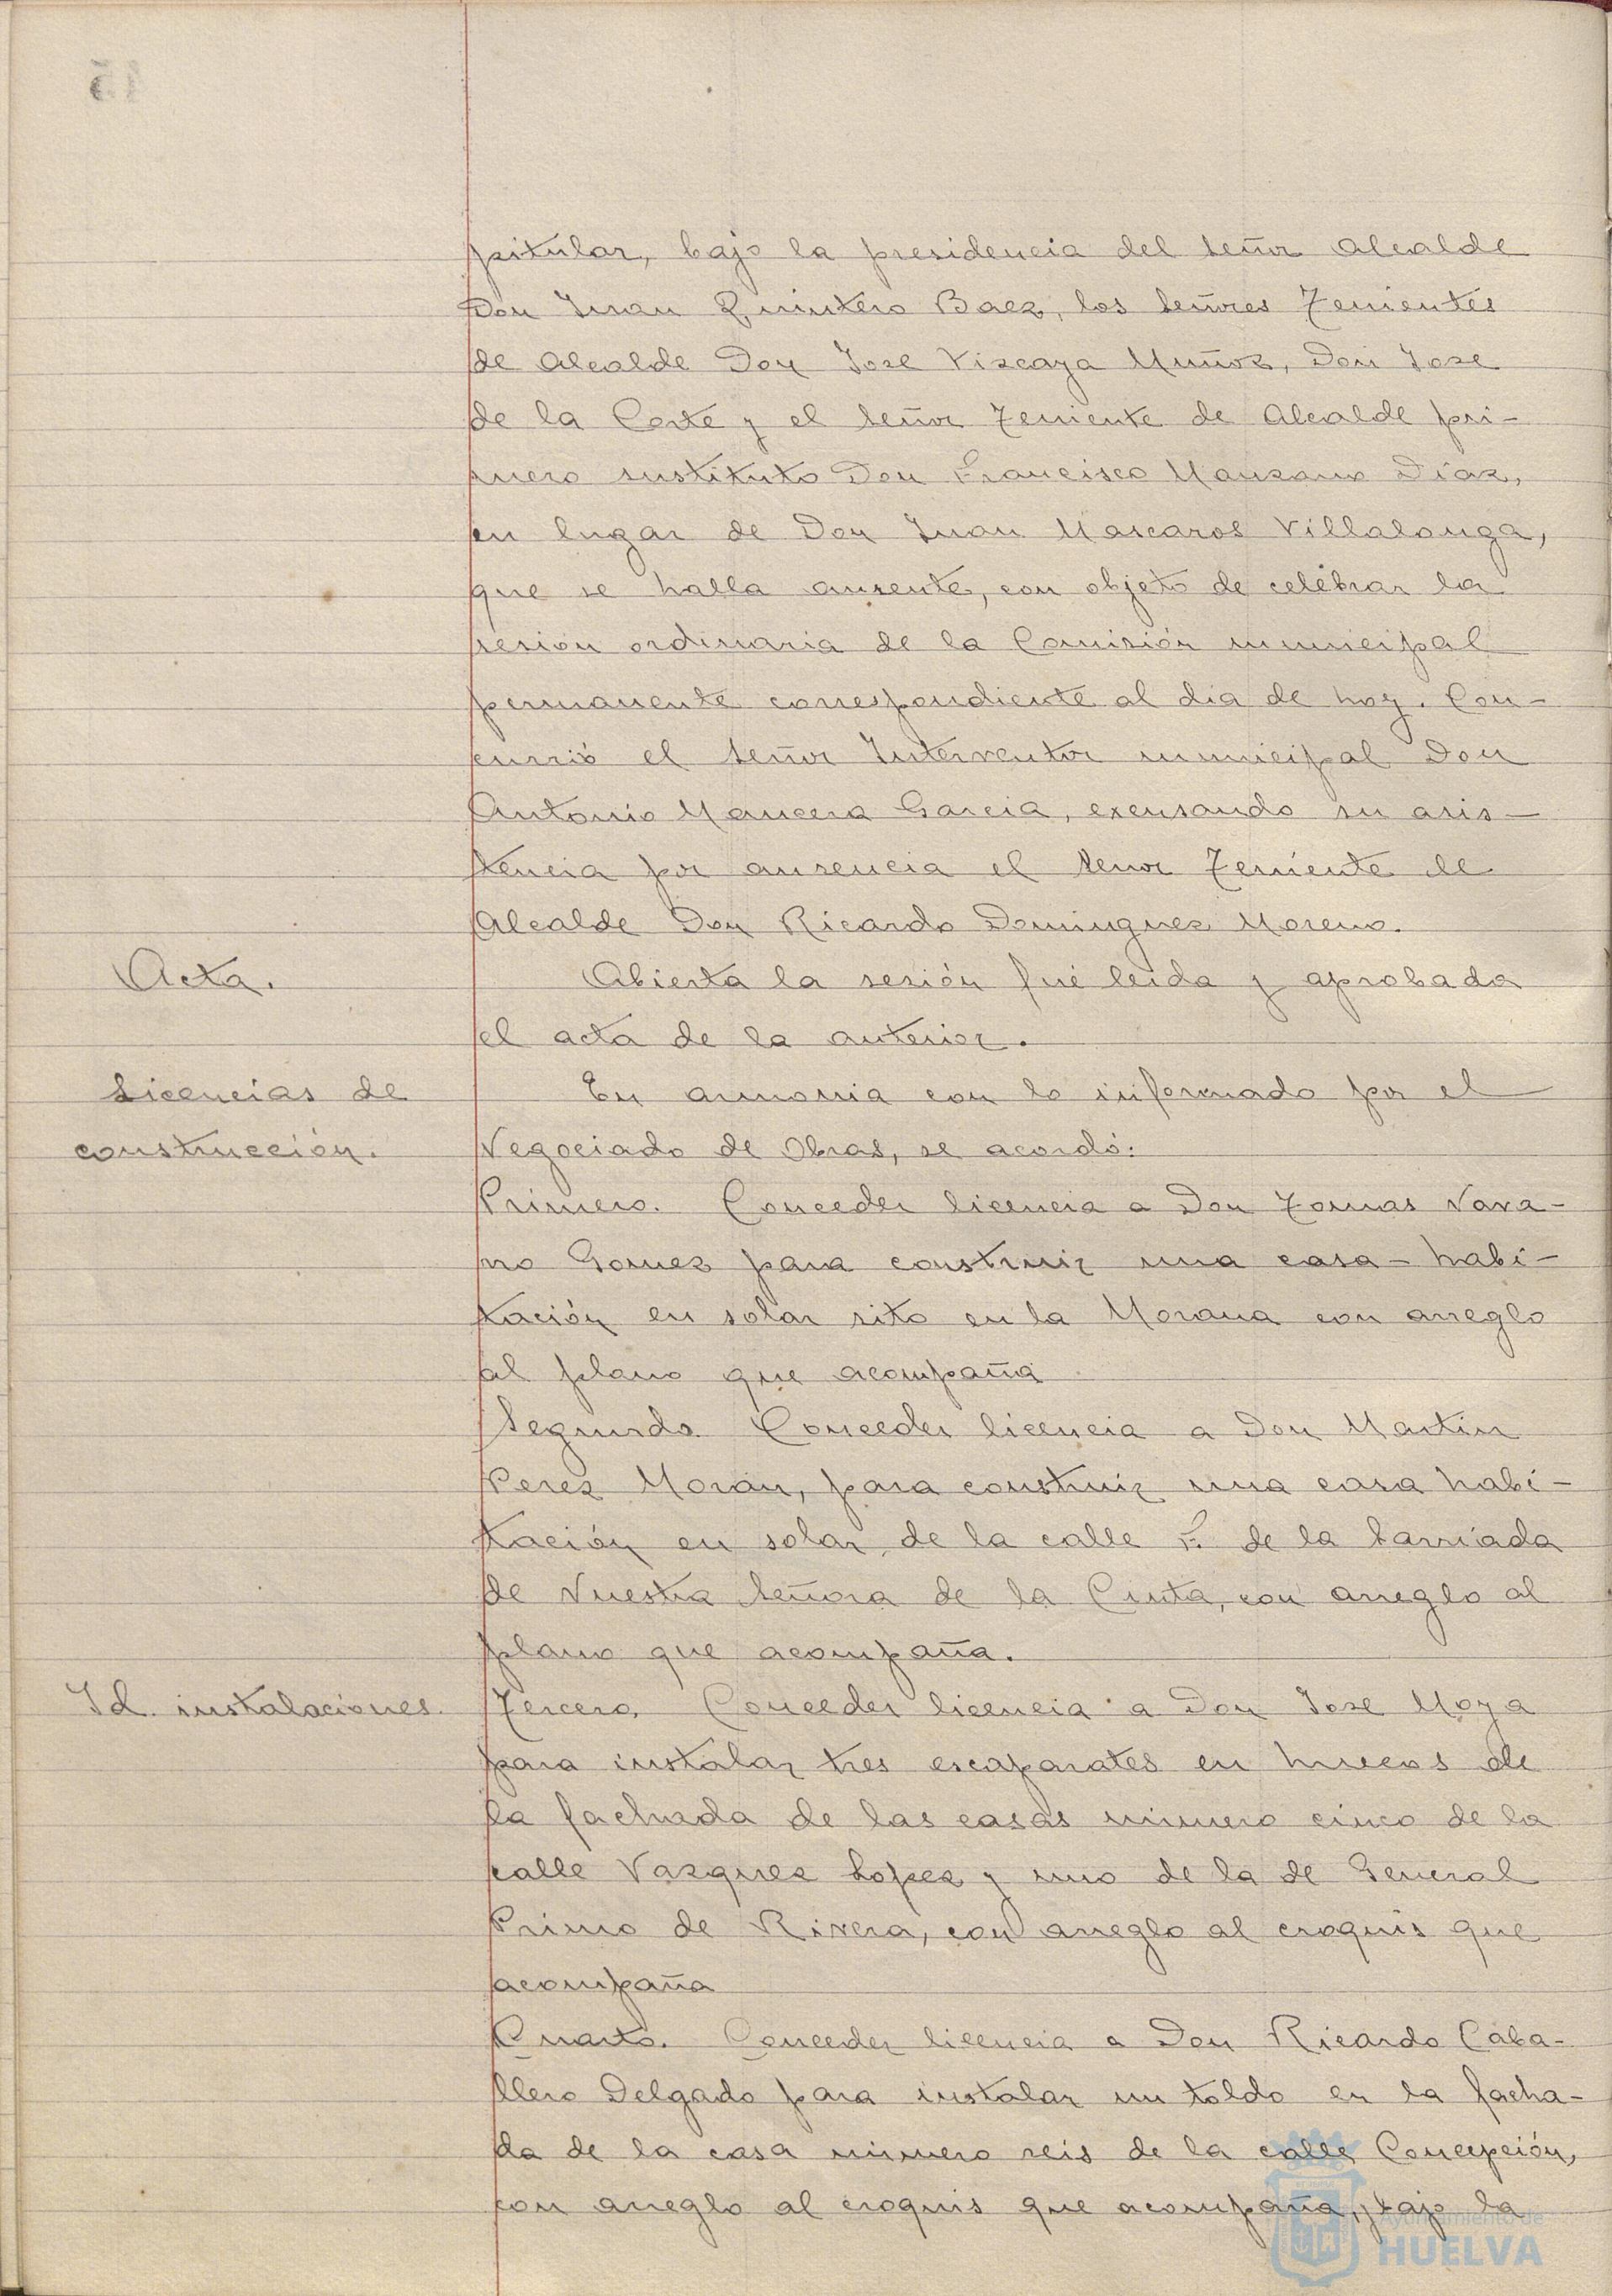 pitular, bajo la presidencia del señor Alcalde
Don Juan Quintero Baez, los señores Tenientes
de Alcalde Don Jose Viscaya Muñoz, Don Jose
de la Corte y el señor Teniente de Alcalde pri-
mero sustituto Don Francisco Manzano Díaz,
en lugar de Don Juan Mascaros Villalonga,
que se halla ausente, con objeto de celebrar la
sesion ordinaria de la Comisión municipal
permanente correspondiente al dia de hoy. Con-
currió el señor Interventor municipal Don
Antonio Mancera Garcia, excusando su asis-
tencia por ausencia el senor Teniente de
Alcalde Don Ricardo Dominguez Moreno.
Acta.
Abierta la sesión fué leida y aprobada
el acta de la anterior.
Licencias de
construcción.
En armonia con lo informado por el
Negociado de Obras, se acordó:
Primero. Conceder licencia a Don Tomas Nava-
rro Gomez para construir una casa-habi-
tación en solar sito en la Morana con arreglo
al plano que acompaña
Segundo. Conceder licencia a Don Martin
Perez Moran, para construir una casa habi-
tación en solar de la calle F. de la barriada
de Nuestra Señora de la Cinta, con arreglo al
plano que acompaña.
Id. instalaciones.
Tercero. Conceder licencia a Don Jose Moya
para instalar tres escaparates en huecos de
la fachada de las casas número cinco de la
calle Vazquez Lopez y uno de la de General
Primo de Rivera, con arreglo al croquis que
acompaña
Cuarto. Conceder licencia a Don Ricardo Caba-
llero Delgado para instalar un toldo en la facha-
da de la casa número seis de la calle Concepción,
con arreglo al croquis que acompaña, y bajo la
Ayuntamiento de
HUELVA